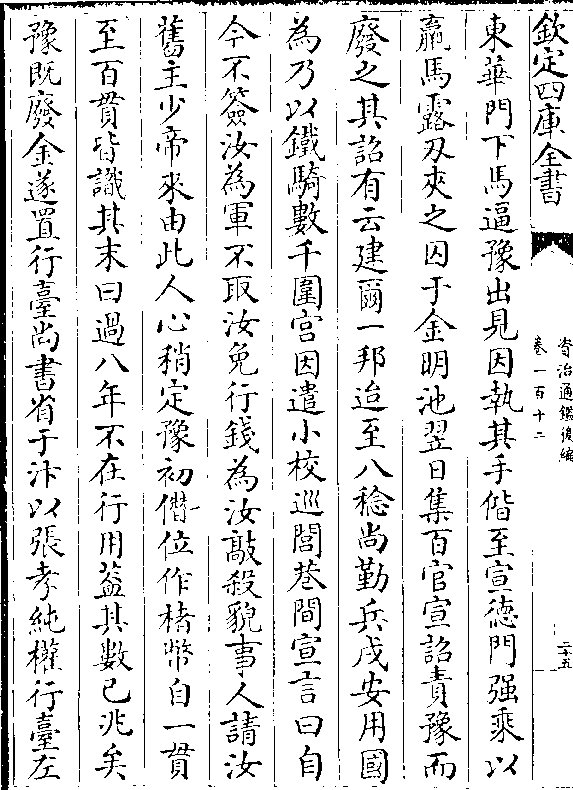 欽定四庫全書
資治通鑑後編
卷一百十二
二十五
東華門下馬逼豫出見因執其手偕至宣德門强乘以
羸馬露刃夾之囚于金明池翌日集百官宣詔責豫而
廢之其詔有云建爾一邦迨至八稔尚勤兵戍安用國
為乃以鐵騎數千圍宫因遣小校巡閭巷間宣言曰自
今不簽汝為軍不取汝免行錢為汝敲殺貌事人請汝
舊主少帝來由此人心稍定豫初僭位作楮幣自一貫
至百貫皆識其末曰過八年不在行用葢其數已兆矣
豫既廢金遂置行臺尚書省于汴以張孝純權行臺左